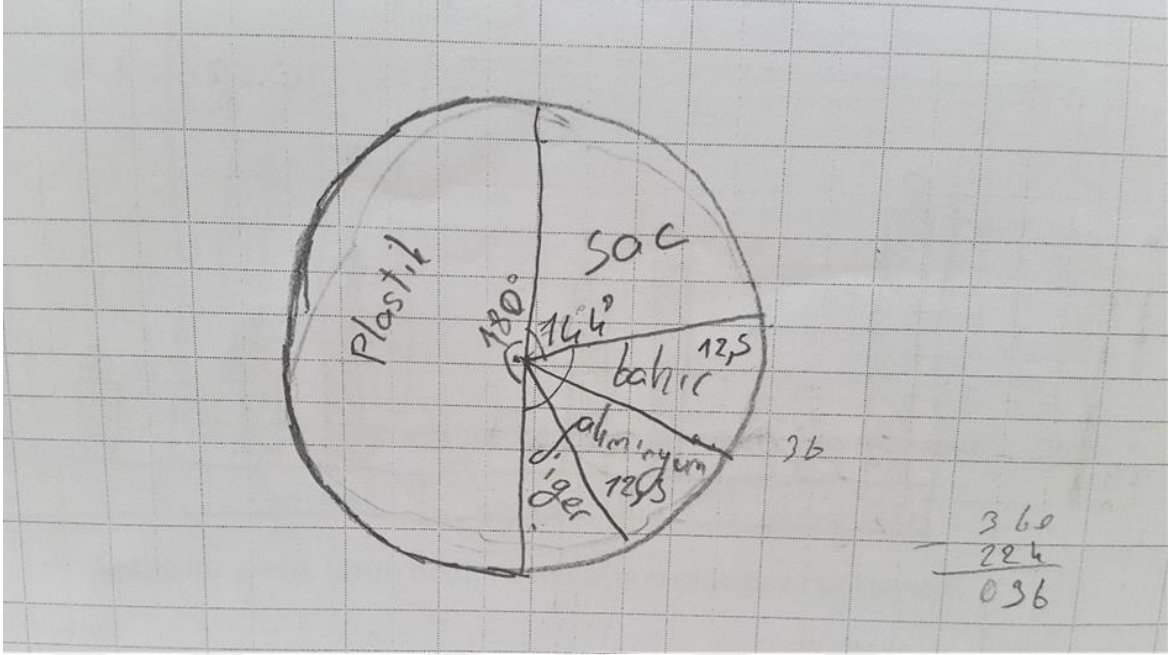 Plastik
180°
sac
144°
12,5
bakır
alminyum
12,5
diğer
36
360
224
036